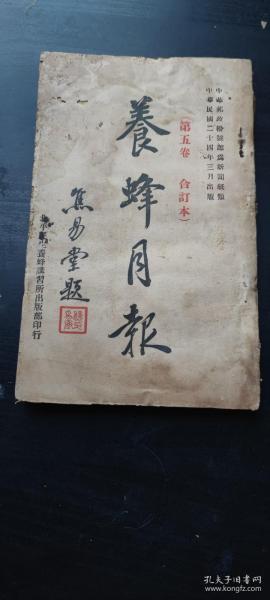 中華郵政掛號認為新聞紙類
中華民國二十四年三月出版
（第五卷　合訂本）
養蜂月報
焦易堂題
養蜂講習所出版部印行
孔夫子旧书网